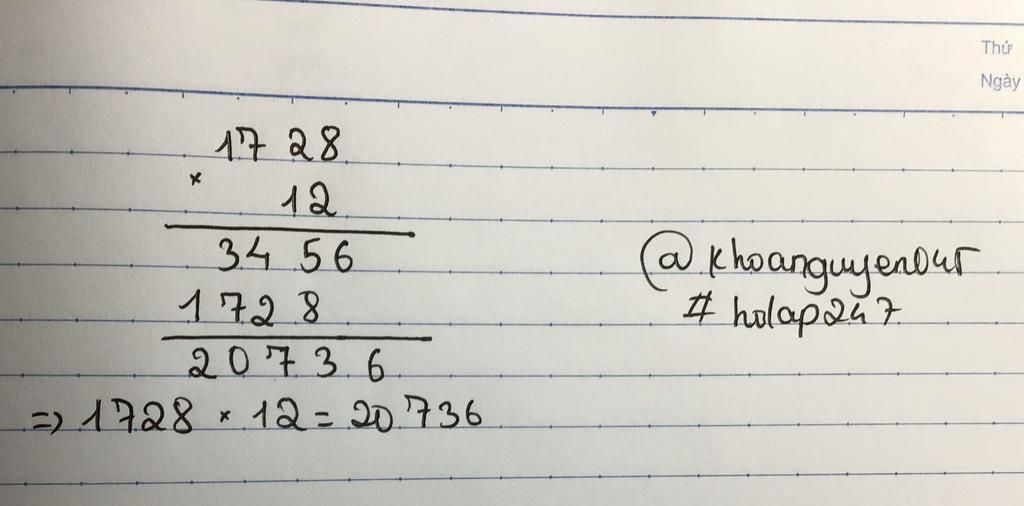 Thứ
Ngày
1728
×
12
3456
1728
20736
=> 1728 × 12 = 20736
@khoanguyen045
# holap247